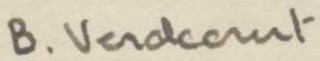 B. Verdcourt